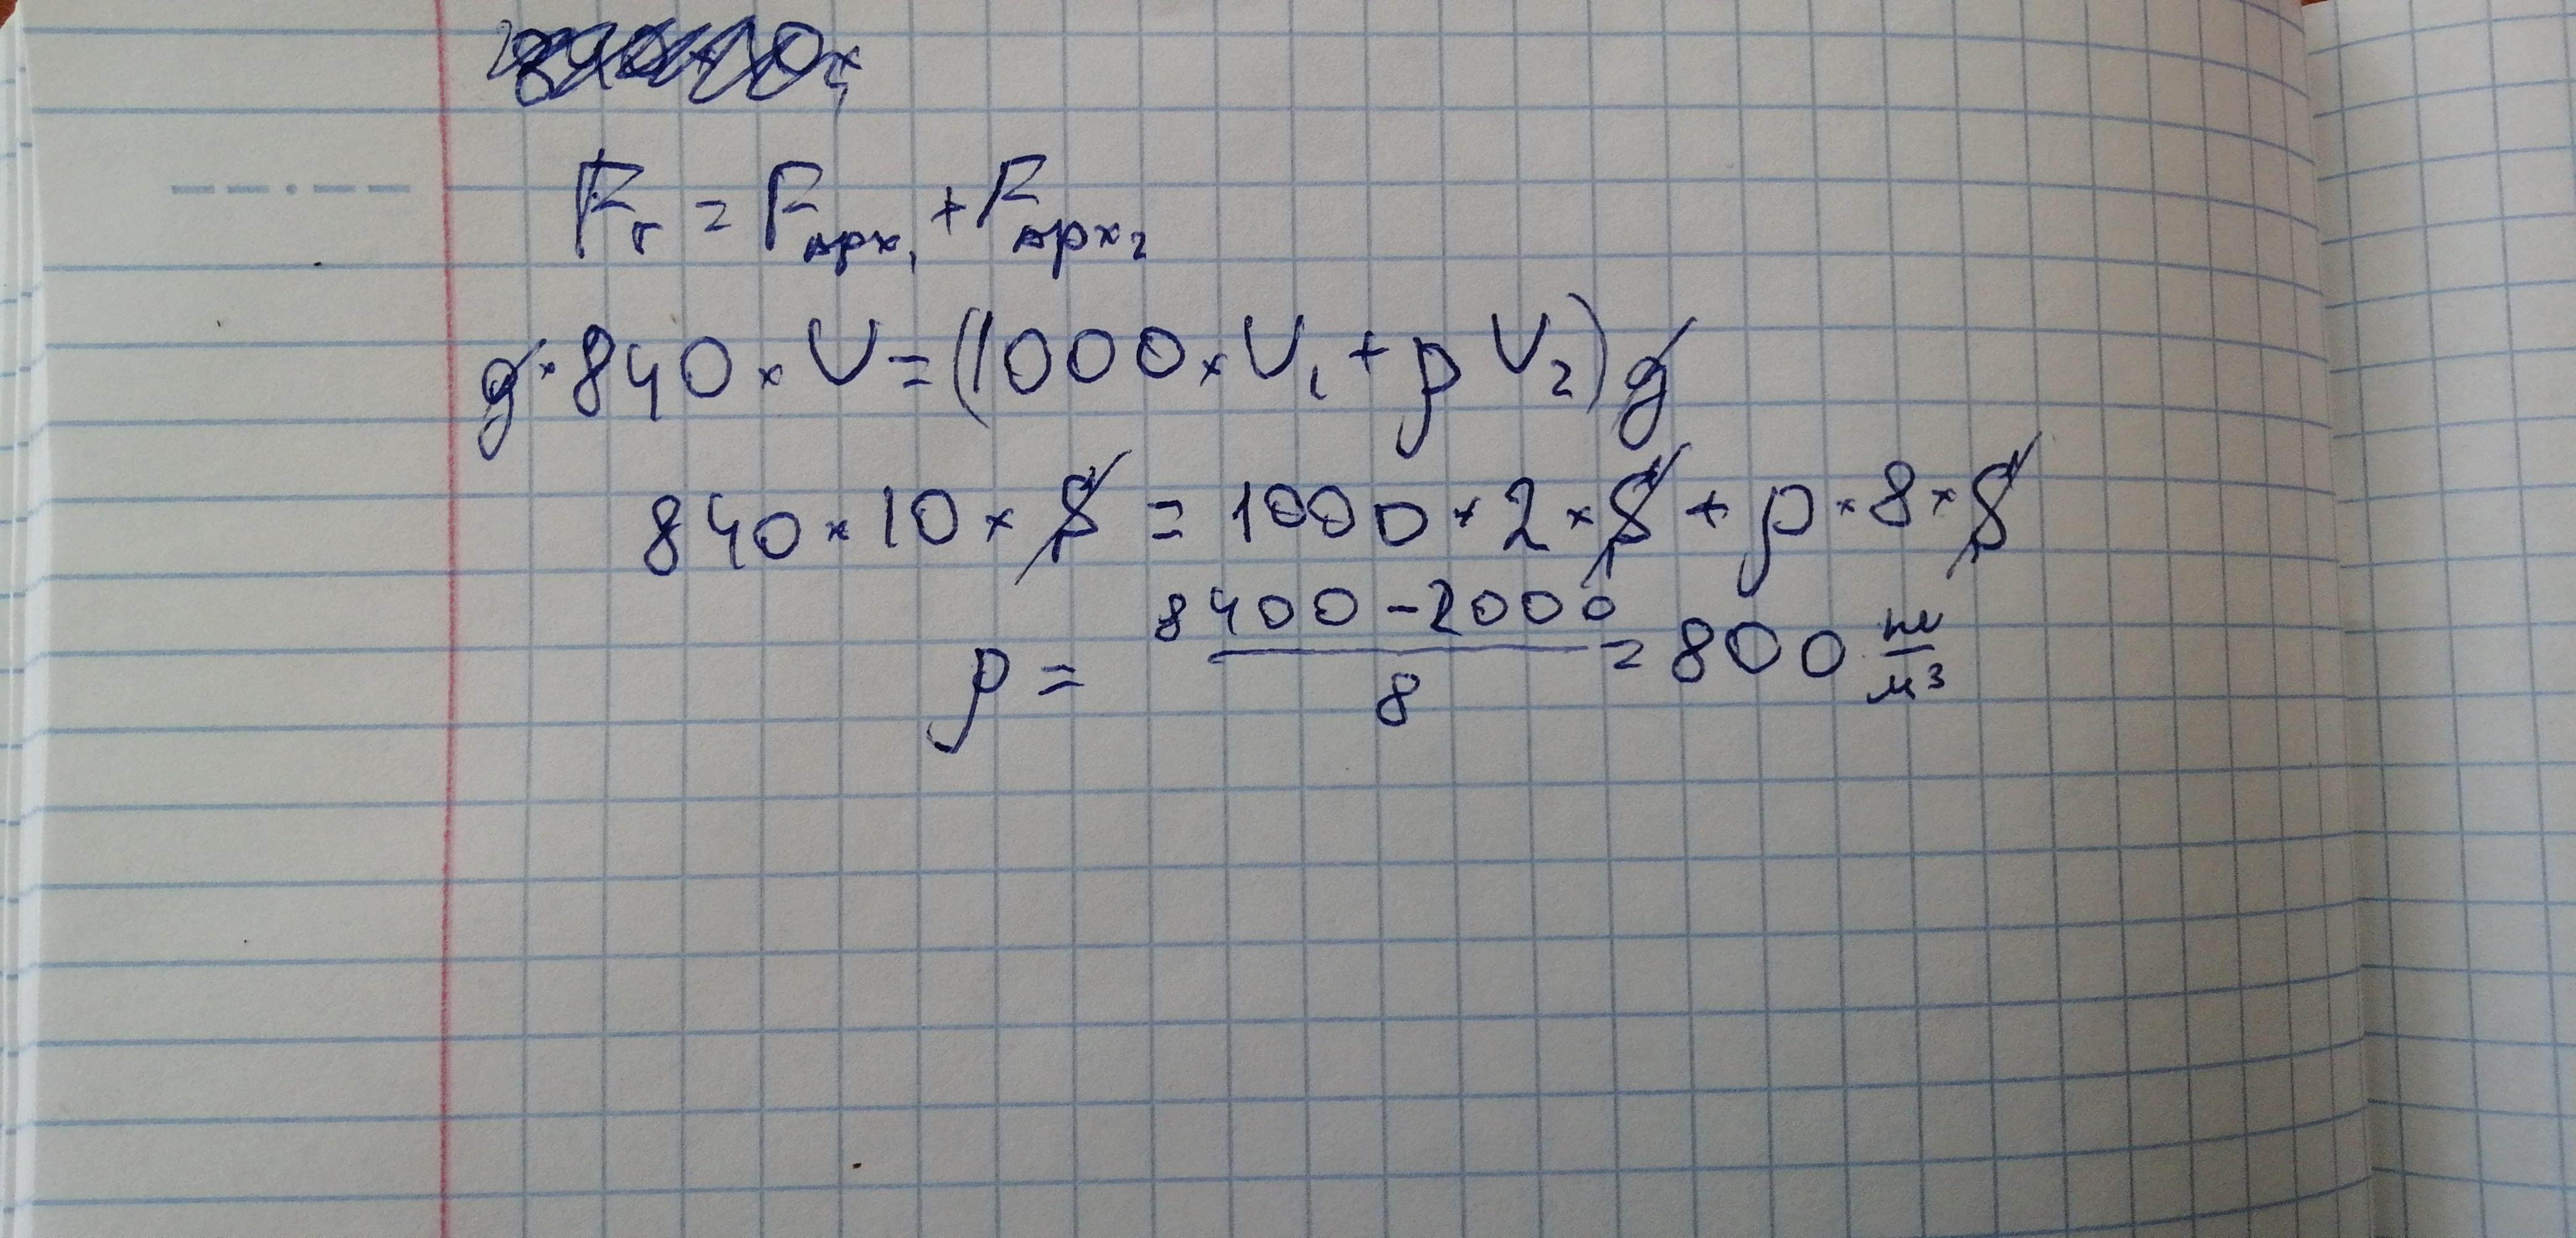 Fт = Fарх1 + Fарх2
g × 840 × V = (1000 × V1 + ρ V2) g
840 × 10 × S = 1000 × 2 × S + ρ × 8 × S
ρ = (8400 - 2000) / 8 = 800 кг/м³